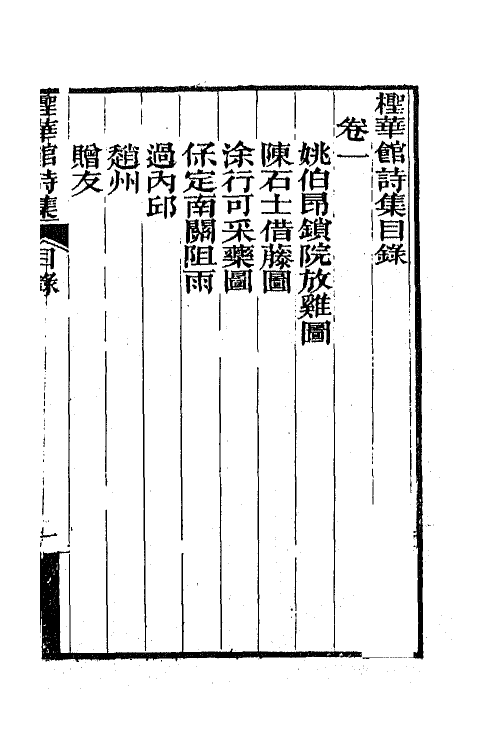 檉華館詩集目錄
卷一
姚伯昂鎖院放雞圖
陳石士借藤圖
涂行可采藥圖
保定南關阻雨
過內邱
趙州
贈友
檉華館詩集
目錄
一